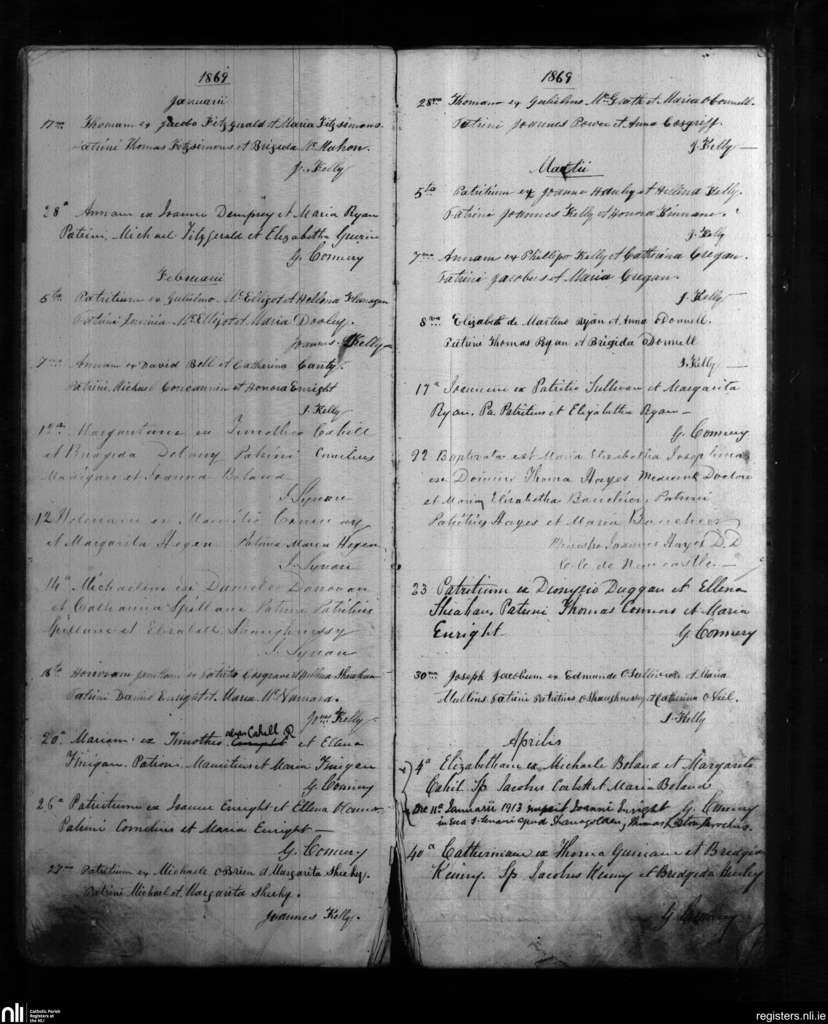 1869
Januarii
17mo Thomam ex Jacobo Fitzgerald et Maria Fitzsimons.
Patrini Thomas Fitzsimons et Brigida McMahon.
J. Kelly
28a Annam ex Joanne Dempsey et Maria Ryan
Patrini, Michael Fitzgerald et Elizabetha Guerin
G. Conmery
Februarii
5to Patritium ex Gulielmo McElligot et Helena Flanagan
Patrini McElligot et Maria Dooley.
Joannes Kelly
7mo Annam ex David Bell et Catharina Canty.
Patrini Michael Concannon et Honora Enright
J. Kelly
12a Margaritam ex Timotheo Cahill
et Brigida Delany Patrini Cornelius
Madigan et Joanna Boland
J. Synan
12 ex
et Margarita Hogan Patrina Maria Hogan
J. Synan
14a Michaelem ex Daniele Donovan
et Catharina Spillane Patrini Patritius
Spillane et Elizabeth Shaughnessy
J. Synan
18to Honoram ex Patritio Cosgrave et Sheahan
Patrini Daniel Enright et Maria McNamara.
Joes Kelly
20a Mariam ex Timotheo alias Cahill R et Ellena
Finigan. Patrini Mauritius et Maria Finigan
G. Conmery
26a Patritium ex Joanne Enright et Ellena
Patrini Cornelius et Maria Enright
G. Conmery
27mo Patritium ex Michaele O'Brien et Margarita Sheehy.
Patrini Michael et Margarita Sheehy.
Joannes Kelly.
1869
28mo Thomam ex Gulielmo McGrath et Maria O'Connell.
Patrini Joannes Power et Anna Cosgriff.
J. Kelly
Martii
5to Patritium ex Joanne Hanly et Hellena Kelly.
Patrini Joannes Kelly et Honora Kinnane.
J. Kelly
7mo Annam ex Phillipo Kelly et Catherina Cregan.
Patrini Jacobus et Maria Cregan.
J. Kelly
8vo Elizabeth de Martino Ryan et Anna O'Donnell.
Patrini Thomas Ryan et Brigida O'Donnell
J. Kelly
17a Joannem ex Patritio Sullivan et Margarita
Ryan. Pa. Patritius et Elizabetha Ryan
G. Conmery
22 Baptizata est Maria Elizabetha Josephina
ex Domino Thoma Hayes Doctore
et Maria Elizabetha Bouchier, Patrini
Patritius Hayes et Maria Bouchier
Ministro Joannes Hayes D.D
C.C. de Newcastle
23 Patritium ex Dionysio Duggan et Ellena
Sheahan, Patrini Thomas Connors et Maria
Enright G Conmery
30mo Joseph Jacobum ex Edmundo O'Sullivan et Maria
Mullins Patrini Patritius O'Shaughnessy et Catherina O'Neil.
J. Kelly
Aprilis
4a Elizabetham ex Michaele Boland et Margarita
Cahil. Sp Jacobus Corbett et Maria Boland
Die 11a Januarii 1913 nupsit Joanni Enright G. Conmery
in Ecca apud Shanagolden, Thomas
10a Catherinam ex Thoma Guinane et Bredgida
Kenny. Sp Jacobus Kenny et Bredgida Kenny
G. Conmery
nli
Catholic Parish
Registers at
the NLI
registers.nli.ie